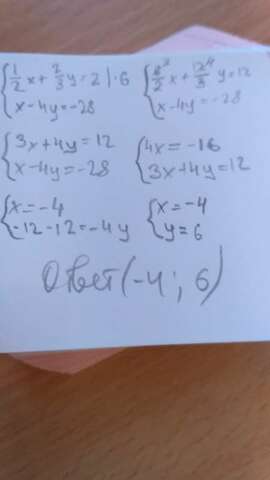 { 1/2 x + 2/3 y = 2 | · 6
x - 4y = -28
{ 6³/2 x + 12⁴/3 y = 12
x - 4y = -28
{ 3x + 4y = 12
x - 4y = -28
{ 4x = -16
3x + 4y = 12
{ x = -4
-12 - 12 = -4y
{ x = -4
y = 6
Ответ (-4; 6)